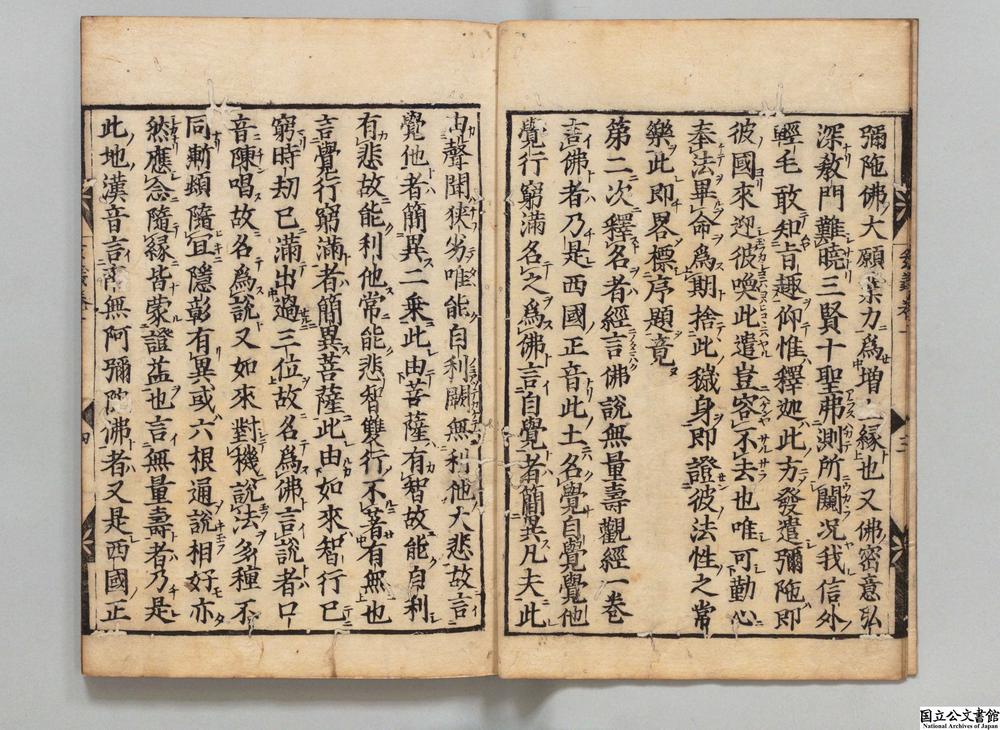 彌陁佛大願業力爲增上緣也又佛密意弘
深敎門難曉三賢十聖弗測所闚况我信外
輕毛敢知旨趣仰惟釋迦此方發遣彌陁即
彼國來迎彼喚此遣豈容不去也唯可勤心
奉法畢命爲期捨此穢身即證彼法性之常
樂此即畧標序題竟
第二次釋名者經言佛說無量壽觀經一卷
言佛者乃是西國正音此土名覺自覺覺他
覺行窮滿名之爲佛言自覺者簡異凡夫此
由聲聞狹劣唯能自利闕無利他大悲故言
覺他者簡異二乗此由菩薩有智故能自利
有悲故能利他常能悲智雙行不著有無也
言覺行窮滿者簡異菩薩此由如來智行已
窮時劫已滿出過三位故名爲佛言說者口
音陳唱故名爲說又如來對機說法多種不
同漸頓隨冝隱彰有異或六根通說相好亦
然應念隨緣皆蒙證益也言無量壽者乃是
此地漢音言南無阿彌陁佛者又是西國正
国立公文書館
National Archives of Japan